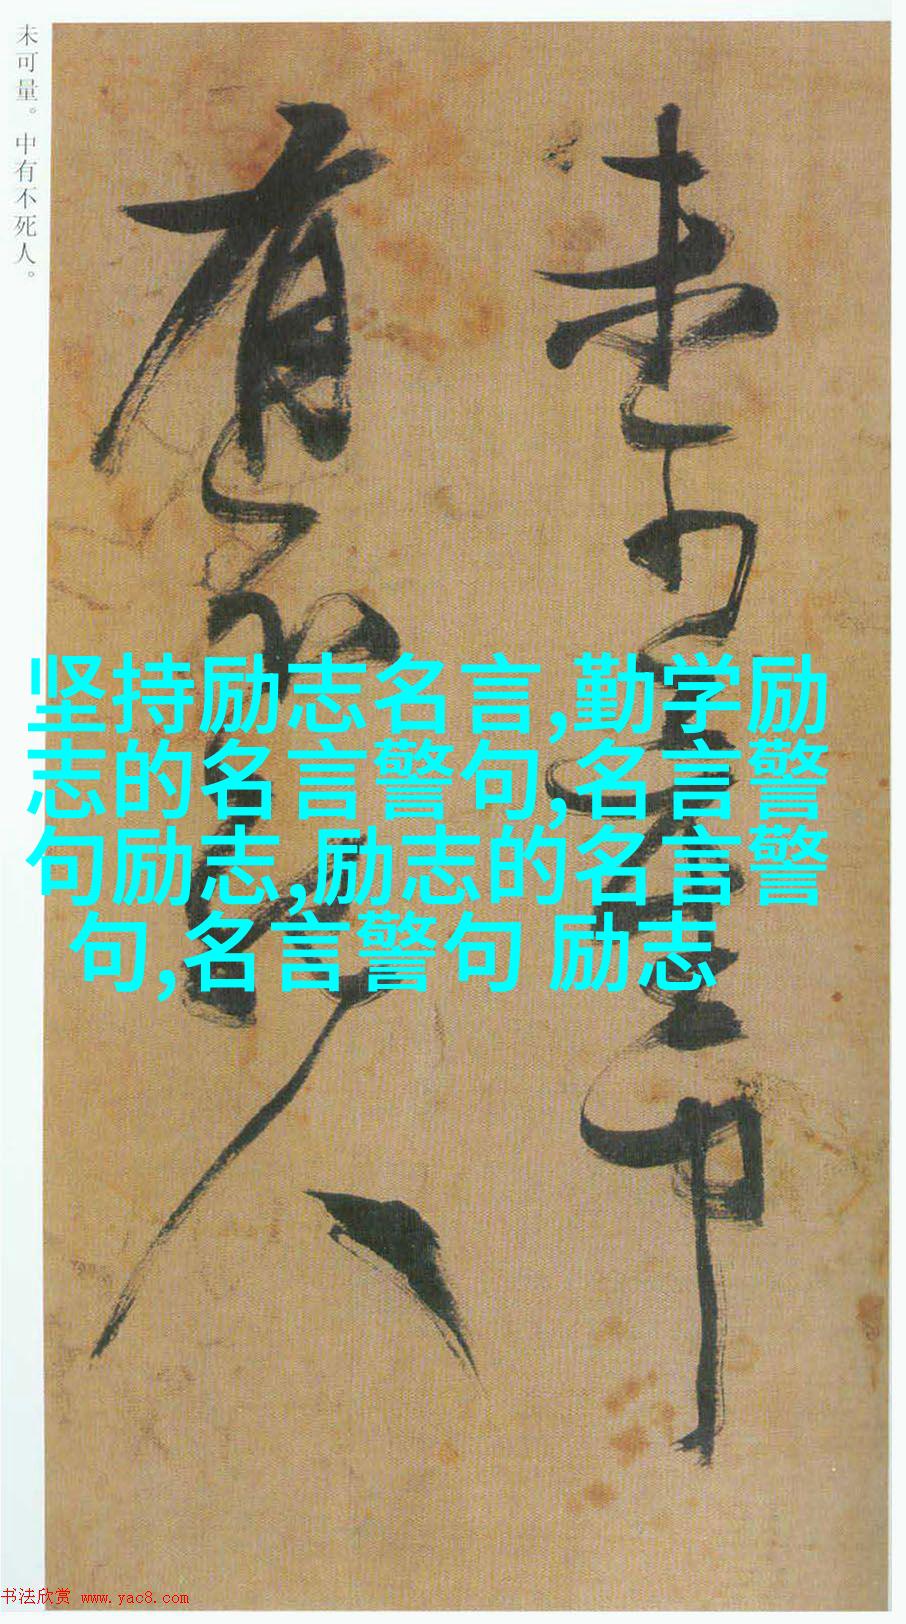 未可量。中有不死人。
未可量中
有不死人
坚持励志名言,勤学励
志的名言警句,名言警
句励志,励志的名言警
句,名言警句 励志
书法欣赏 www.yac8.com